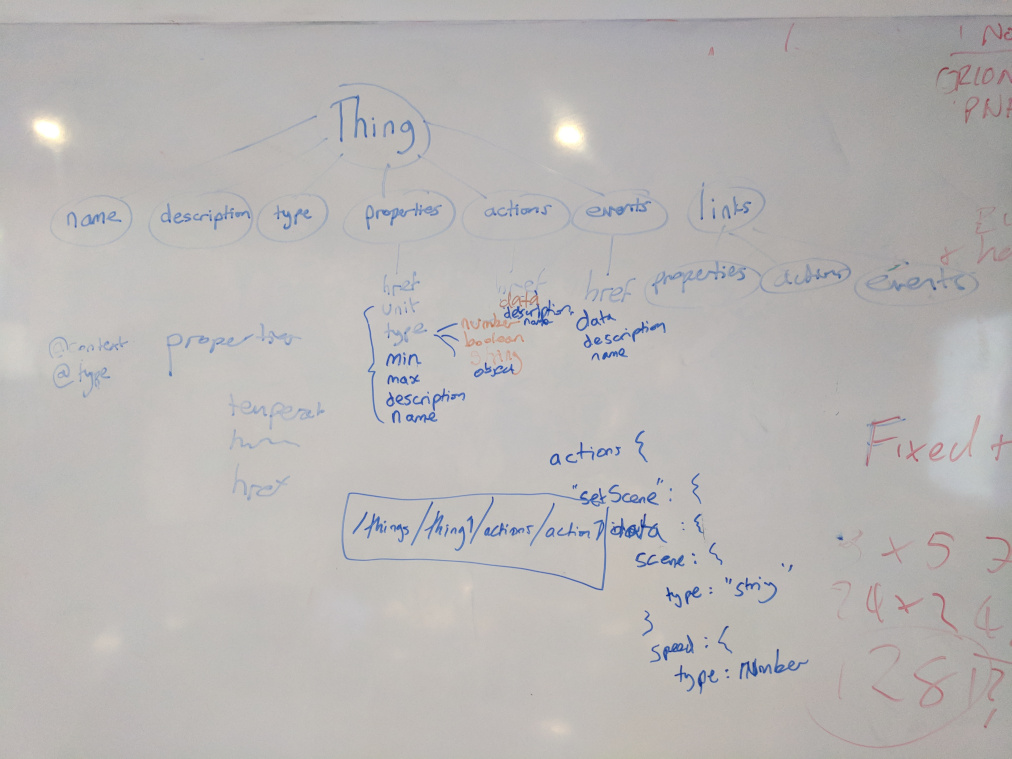 Thing
name description type properties actions events links
href href href properties actions events
unit data
type number description data
boolean name description
string name
min object
max
description
name
@context properties
@type
temperat
href
actions {
"setScene" : {
/things/thing1/actions/action1/ data : {
scene : {
type : "striy",
}
speed : {
type : Number
1 No
ORION
PNA
Fixed +
x 5
24 x 24
128